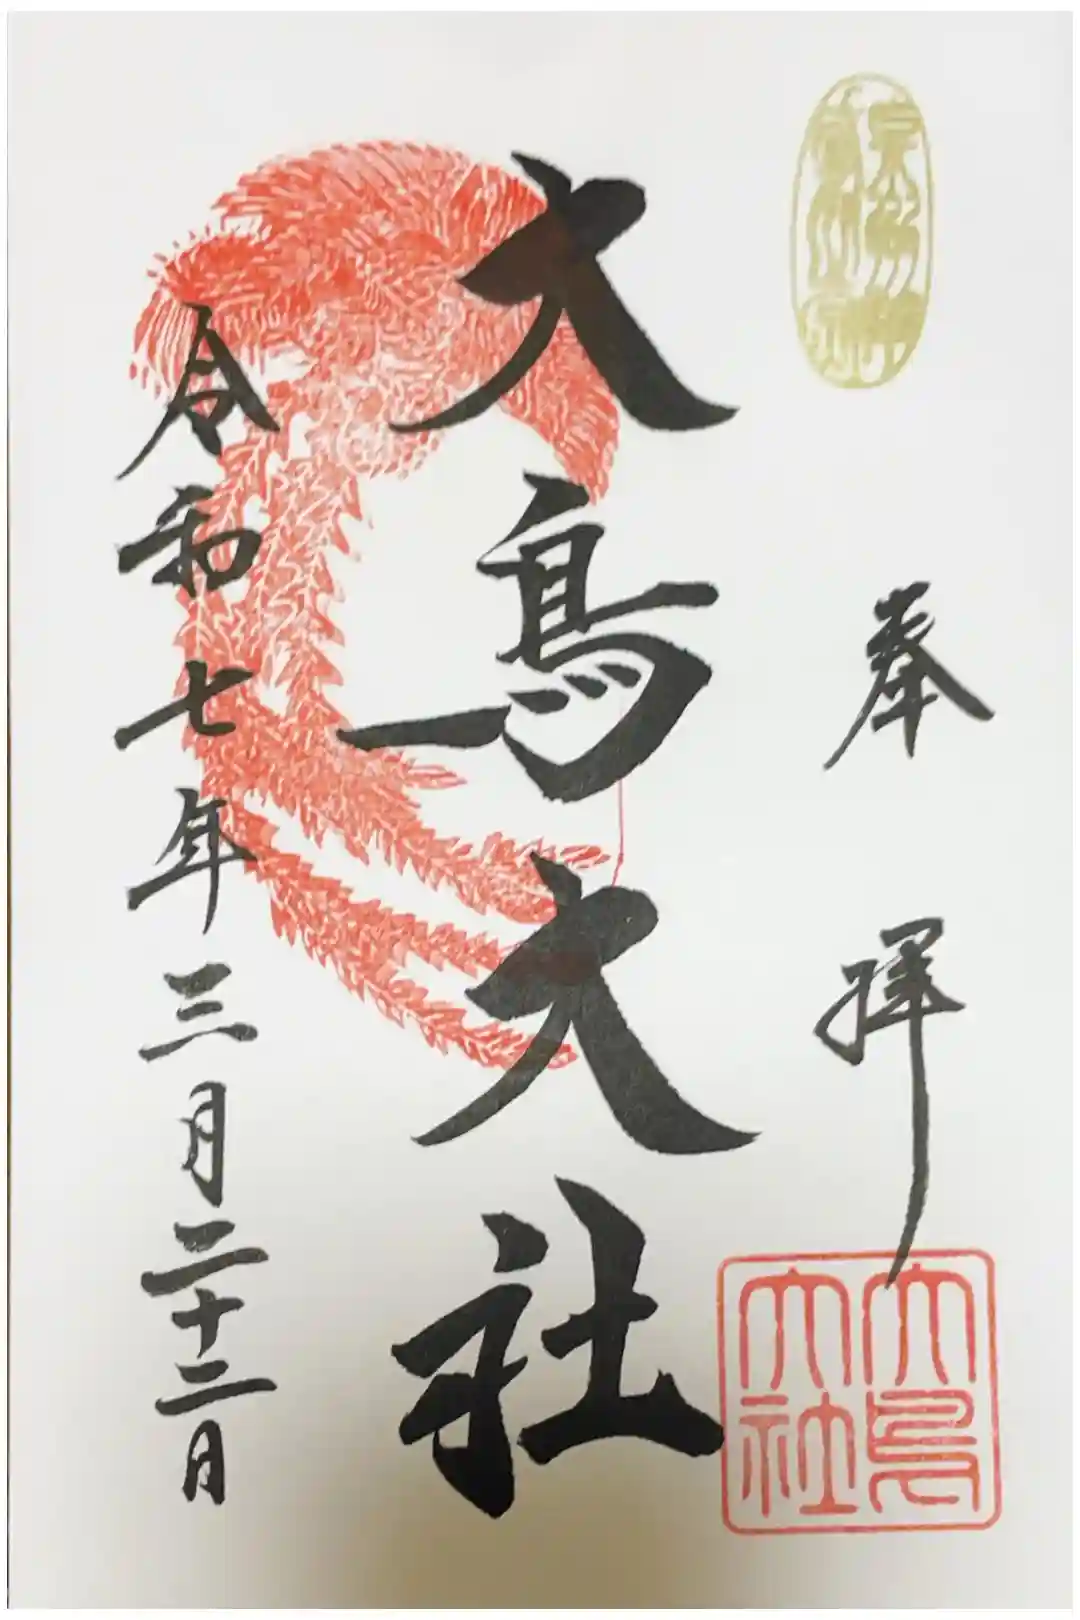 奉拝
大鳥
大社
大鳥大社
令和七年三月二十二日